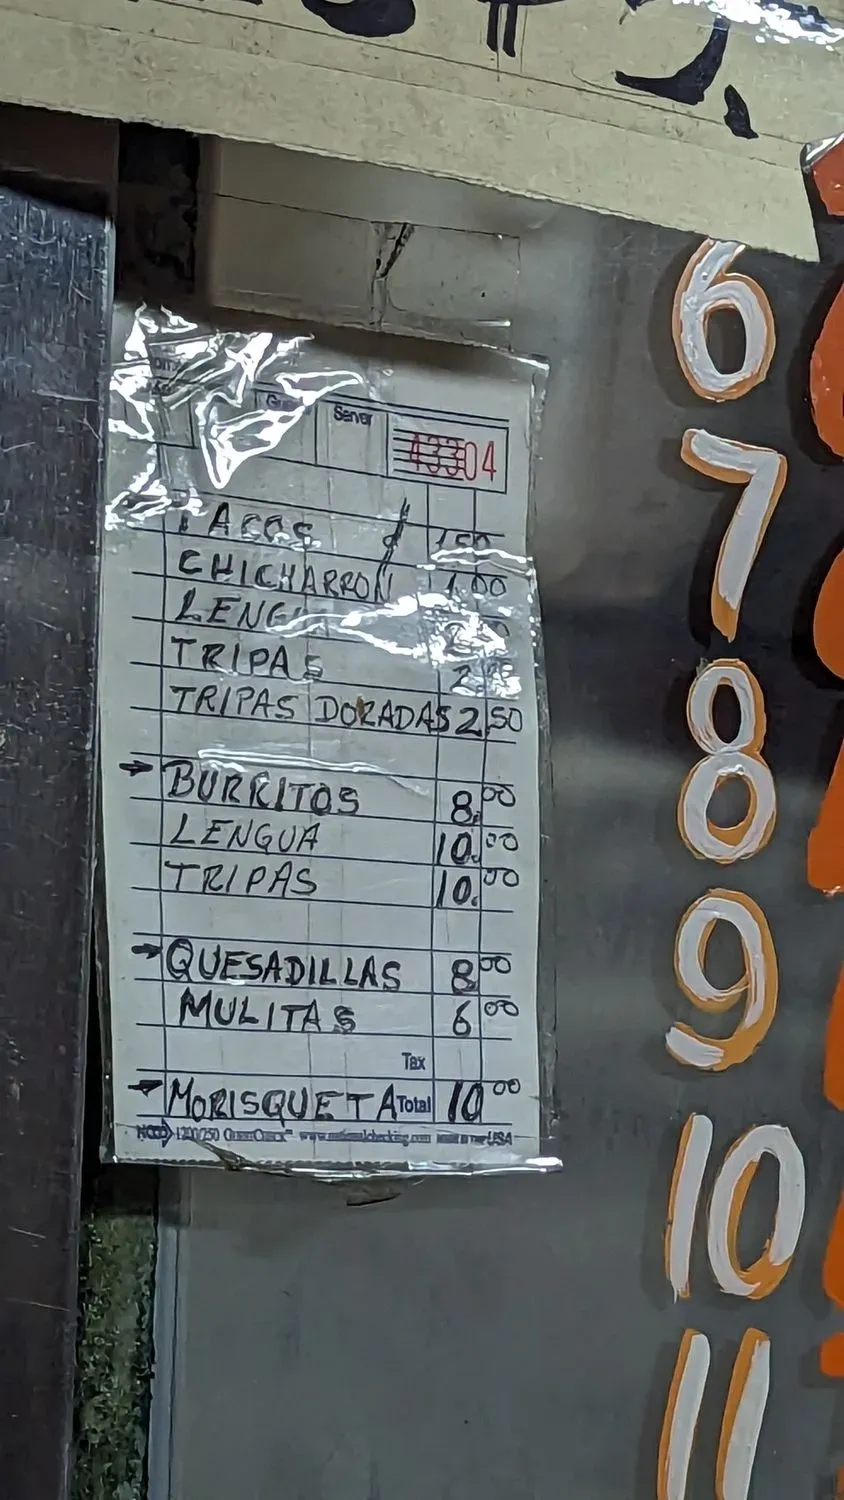 Server
43304
TACOS $ 1.50
CHICHARRON 1.00
LENGUA
TRIPAS
TRIPAS DORADAS 2.50
→ BURRITOS 8.00
LENGUA 10.00
TRIPAS 10.00
→ QUESADILLAS 8.00
MULITAS 6.00
Tax
→ MORISQUETA Total 10.00
www.nationalchecking.com
USA
6
7
8
9
10
11